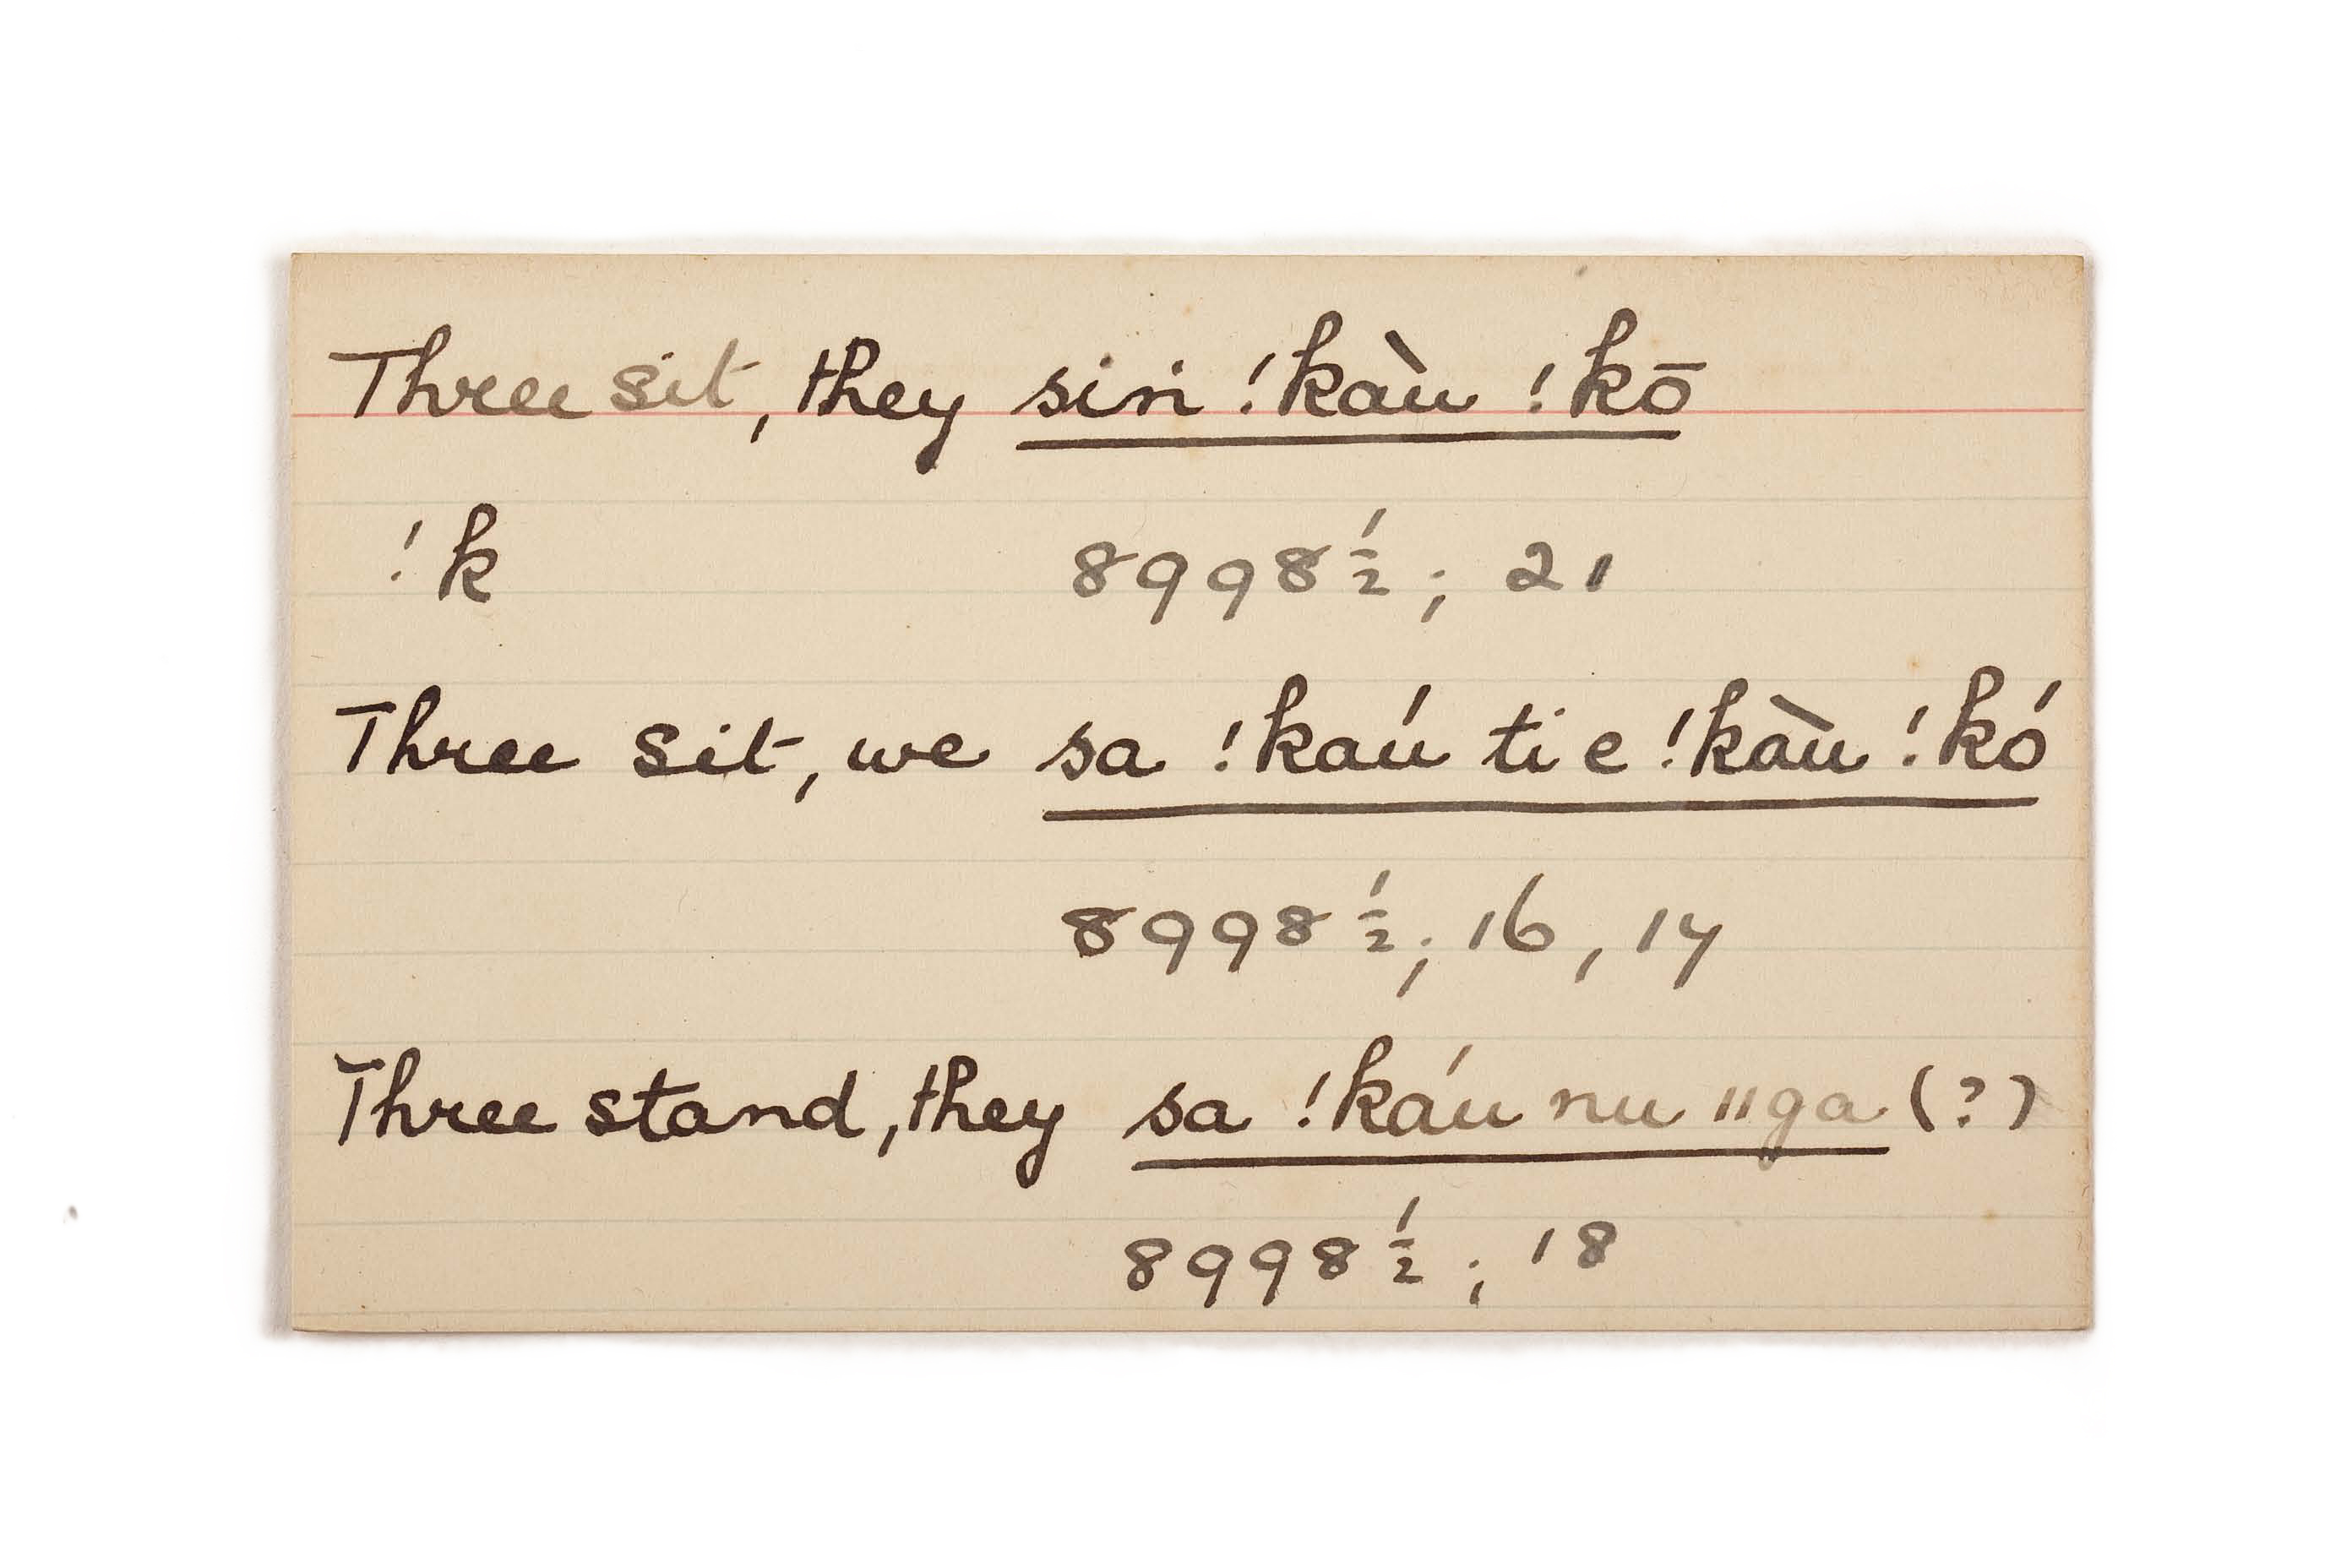 Three sit, they sin !kàu !kō
!k 8998½; 21
Three sit, we sa !kaú ti e !kàu !kó
8998½; 16, 17
Three stand, they sa !káu nu ǁga (?)
8998½; 18